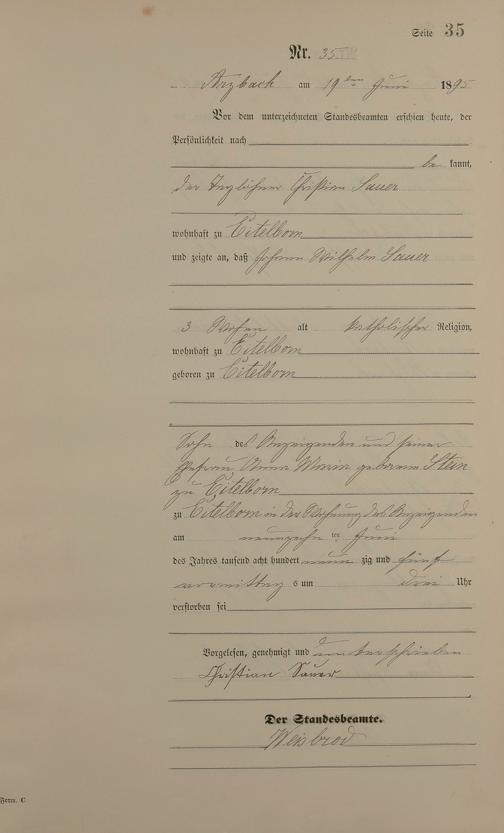 Seite 35
Nr. 35
Arzbach am 19ten Juni 1895
Vor dem unterzeichneten Standesbeamten erschien heute, der
Persönlichkeit nach
be kannt,
der Taglöhner Christian Sauer
wohnhaft zu Eitelborn
und zeigte an, daß Johann Wilhelm Sauer
3 Wochen alt katholischer Religion,
wohnhaft zu Eitelborn
geboren zu Eitelborn
Sohn des Anzeigenden und seiner
Ehefrau Anna Maria geborene Stein
zu Eitelborn
zu Eitelborn in der Wohnung des Anzeigenden
am neunzehn ten Juni
des Jahres tausend acht hundert neun zig und fünf
vormittag s um drei Uhr
verstorben sei
Vorgelesen, genehmigt und unterschrieben
Christian Sauer
Der Standesbeamte.
Weisbrod
Form. C